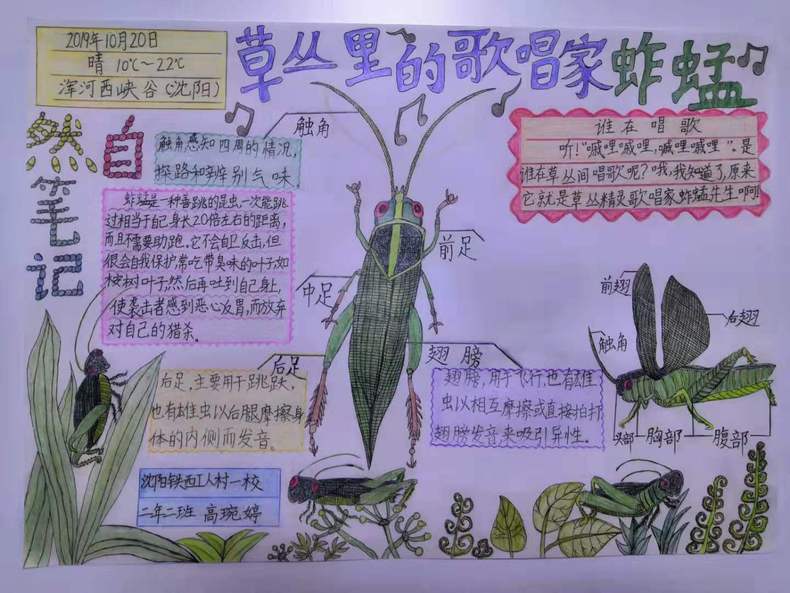 2019年10月20日
晴 10℃~22℃
浑河西峡谷(沈阳)
草丛里的歌唱家蚱蜢
自然
笔记
触角
触角感知四周的情况,
探路和辨别气味.
谁在唱歌
听!“嘁哩嘁哩,嘁哩嘁哩”.是
谁在草丛间唱歌呢?哦,我知道了,原来
它就是草丛精灵歌唱家蚱蜢先生啊!
蚱蜢是一种善跳的昆虫,一次能跳
过相当于自己身长20倍左右的距离,
而且不需要助跑.它不会自卫反击,但
很会自我保护常吃带臭味的叶子如
桉树叶子,然后再吐到自己身上,
使袭击者感到恶心反胃,而放弃
对自己的猎杀.
前足
中足
后足
翅膀
前翅
后翅
触角
头部
胸部
腹部
后足,主要用于跳跃.
也有雄虫以后腿摩擦身
体的内侧而发音.
翅膀,用于飞行,也有雄
虫以相互摩擦或直接拍打
翅膀发音来吸引异性.
沈阳铁西工人村一校
二年二班 高琬婷